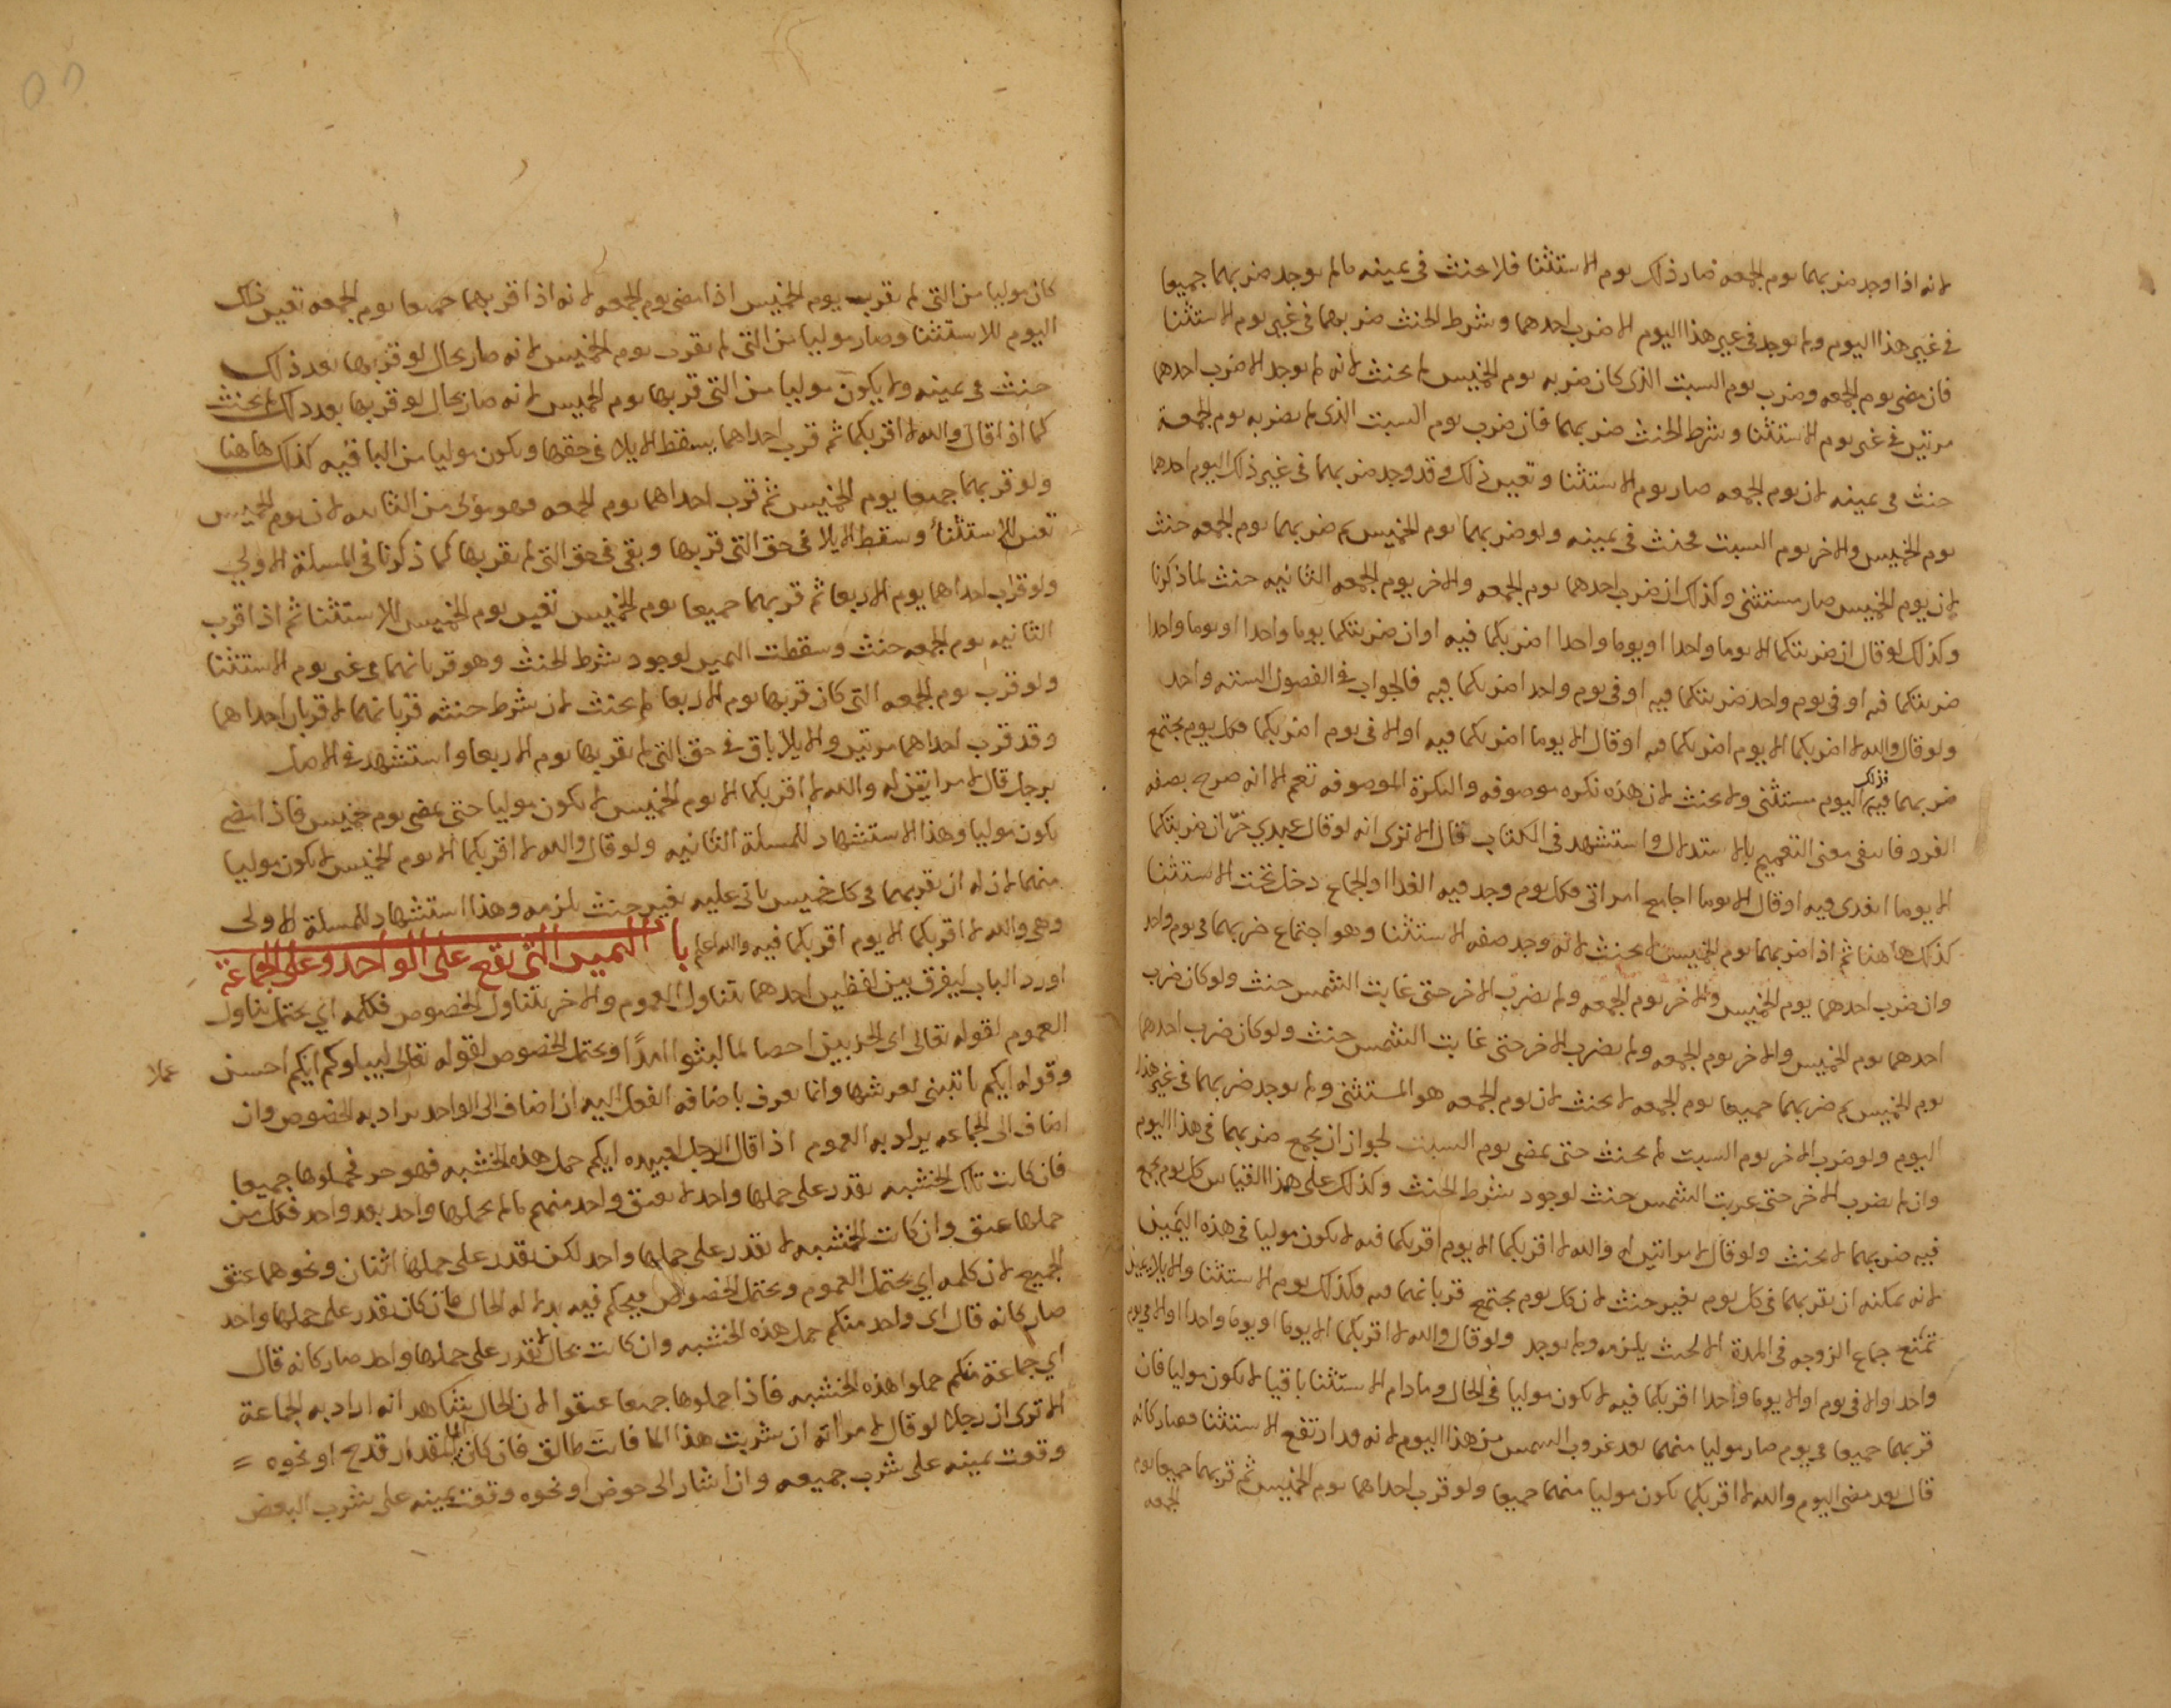 لانه اذا وجد ضربهما يوم الجمعه صار ذلك يوم الاستثنا فلا يحنث في يمينه مالم يوجد ضربهما جميعا
في غير هذا اليوم ولم يوجد في غير هذا اليوم الا ضرب احدهما وشرط الحنث ضربهما في غير يوم الاستثنا
فان مضى يوم الجمعه وضرب يوم السبت الذي كان ضربه يوم الخميس لم يحنث لانه لم يوجد الا ضرب احدهما
مرتين في غير يوم الاستثنا وشرط الحنث ضربهما فان ضرب يوم السبت الذي لم يضربه يوم الجمعة
حنث في يمينه لان يوم الجمعه صار يوم الاستثنا وتعين ذلك وقد وجد ضربهما في غير ذلك اليوم احدهما
يوم الخميس والاخر يوم السبت فحنث في يمينه ولو ضربهما يوم الخميس ثم ضربهما يوم الجمعه حنث
لان يوم الخميس صار مستثنى وكذلك ان ضرب احدهما يوم الجمعه والاخر يوم الجمعه الثانيه حنث لما ذكرنا
وكذلك لو قال ان ضربتكما الا يوما واحدا او يوما واحدا اضربكما فيه او ان ضربتكما يوما واحدا او يوما واحدا
ضربتكما فيه او في يوم واحد ضربتكما فيه او في يوم واحد اضربكما فيه فالجواب في الفصول الستة واحد
ولو قال والله لا اضربكما الا يوم اضربكما فيه او قال الا يوما اضربكما فيه او الا في يوم اضربكما فكل يوم يجتمع
ضربهما فيه فذلك اليوم مستثنى ولا يحنث لان هذه نكره موصوفه والنكرة الموصوفه تعم الا انه صرح بصفه
الفرد فانتفى معنى التعميم بالاستدلال واستشهد في الكتاب قال الا ترى انه لو قال عبدي حرّ ان ضربتكما
الا يوما اتغدى فيه او قال الا يوما اجامع امراتي فكل يوم وجد فيه الغدا او الجماع دخل تحت الاستثنا
كذلك هاهنا ثم اذا ضربهما يوم الخميس لا يحنث لانه وجد صفه الاستثنا وهو اجتماع ضربهما في يوم واحد
وان ضرب احدهما يوم الخميس والاخر يوم الجمعه ولم يضرب الاخر حتى غابت الشمس حنث ولو كان ضرب
احدهما يوم الخميس والاخر يوم الجمعه ولم يضرب الاخر حتى غابت الشمس حنث ولو كان ضرب احدهما
يوم الخميس ثم ضربهما جميعا يوم الجمعه لا يحنث لان يوم الجمعه هو المستثنى ولم يوجد ضربهما في غير هذا
اليوم ولو ضرب الاخر يوم السبت لم يحنث حتى يمضي يوم السبت لجواز ان يجمع ضربهما في هذا اليوم
وان لم يضرب الاخر حتى غربت الشمس حنث لوجود شرط الحنث وكذلك على هذا القياس كل يوم يجمع
فيه ضربهما لا يحنث ولو قال لامراتين له والله لا اقربكما الا يوم اقربكما فيه لا يكون موليا في هذه اليمين
لانه يمكنه ان يقربهما في كل يوم بغير حنث لان كل يوم يجتمع قربانهما فيه فكذلك يوم الاستثنا والايلا يمين
تمنع جماع الزوجه في المدة الا لحنث يلزمه ولم يوجد ولو قال والله لا اقربكما الا يوما او يوما واحدا او الا في يوم
واحد او الا في يوم او الا يوما واحدا اقربكما فيه لا يكون موليا في الحال وما دام الاستثنا باقيا لا يكون موليا فان
قربهما جميعا في يوم صار موليا منهما بعد غروب الشمس من هذا اليوم لانه قد ارتفع الاستثنا فصار كانه
قال بعد مضي اليوم والله لا اقربكما يكون موليا منهما جميعا ولو قرب احداهما يوم الخميس ثم قربهما جميعا يوم
الجمعه
كان موليا من التي لم يقرب يوم الخميس اذا مضى يوم الجمعه لانه اذا قربهما جميعا يوم الجمعه تعين ذلك
اليوم للاستثنا وصار موليا من التي لم يقرب يوم الخميس لانه صار بحال لو قربها بعد ذلك
حنث في يمينه ولا يكون موليا من التي قربها يوم الخميس لانه صار بحال لو قربها بعد ذلك لم يحنث
كما اذا قال والله لا اقربكما ثم قرب احداهما يسقط الايلا في حقها ويكون موليا من الباقيه كذلك هاهنا
ولو قربهما جميعا يوم الخميس ثم قرب احداهما يوم الجمعه فهو مولى من الثانيه لان يوم الخميس
تعين للاستثنا وسقط الايلا في حق التي قربها وبقي في حق التي لم يقربها كما ذكرنا في المسلة الاولى
ولو قرب احداهما يوم الاربعا ثم قربهما جميعا يوم الخميس تعين يوم الخميس للاستثنا ثم اذا قرب
الثانيه يوم الجمعه حنث وسقطت اليمين لوجود شرط الحنث وهو قربانهما في غير يوم الاستثنا
ولو قرب يوم الجمعه التي كان قربها يوم الاربعا لم يحنث لان شرط حنثه قربانهما لا قربان احداهما
وقد قرب احداهما مرتين والايلا باق في حق التي لم يقربها يوم الاربعا واستشهد في الاصل
برجل قال لامراتين له والله لا اقربكما الا يوم الخميس لا يكون موليا حتى يمضي يوم خميس فاذا مضى
يكون موليا وهذا الاستشهاد للمسلة الثانيه ولو قال والله لا اقربكما الا يوم الخميس لا يكون موليا
منهما لان له ان يقربهما في كل خميس ياتي عليه بغير حنث يلزمه وهذا استشهاد للمسلة الاولى
وهي والله لا اقربكما الا يوم اقربكما فيه والله اعلم باب اليمين التي تقع على الواحد وعلى الجماعة
اورد الباب ليفرق بين لفظين احدهما يتناول العموم والاخر يتناول الخصوص فكلمه اي يحتمل تناول
العموم لقوله تعالى اي الحزبين احصا لما لبثوا امدًا ويحتمل الخصوص لقوله تعالى ليبلوكم ايكم احسن
عملا
وقوله ايكم ياتيني بعرشها وانما يعرف باضافه الفعل اليه ان اضاف الى الواحد يراد به الخصوص وان
اضاف الى الجماعه يراد به العموم اذا قال الرجل لعبيده ايكم حمل هذه الخشبه فهو حر فحملوها جميعا
فان كانت تلك الخشبه يقدر على حملها واحد لا يعتق واحد منهم مالم يحملها واحد بعد واحد فكل من
حملها عتق وان كانت الخشبه لا يقدر على حملها واحد لكن يقدر على حملها اثنان ونحوهما عتق
الجميع لان كلمه اي يحتمل العموم ويحتمل الخصوص فيحكم فيه بدلاله الحال فان كان يقدر على حملها واحد
صار كانه قال اي واحد منكم حمل هذه الخشبه وان كانت بحال لا يقدر على حملها واحد صار كانه قال
اي جماعة منكم حملوا هذه الخشبه فاذا حملوها جميعا عتقوا لان الحال يشاهد انه اراد به الجماعة
الا ترى ان رجلا لو قال لامراته ان شربت هذا الما فانت طالق فان كان الما مقدار قدح او نحوه =
وقعت يمينه على شرب جميعه وان اشار الى حوض او نحوه وقعت يمينه على شرب البعض